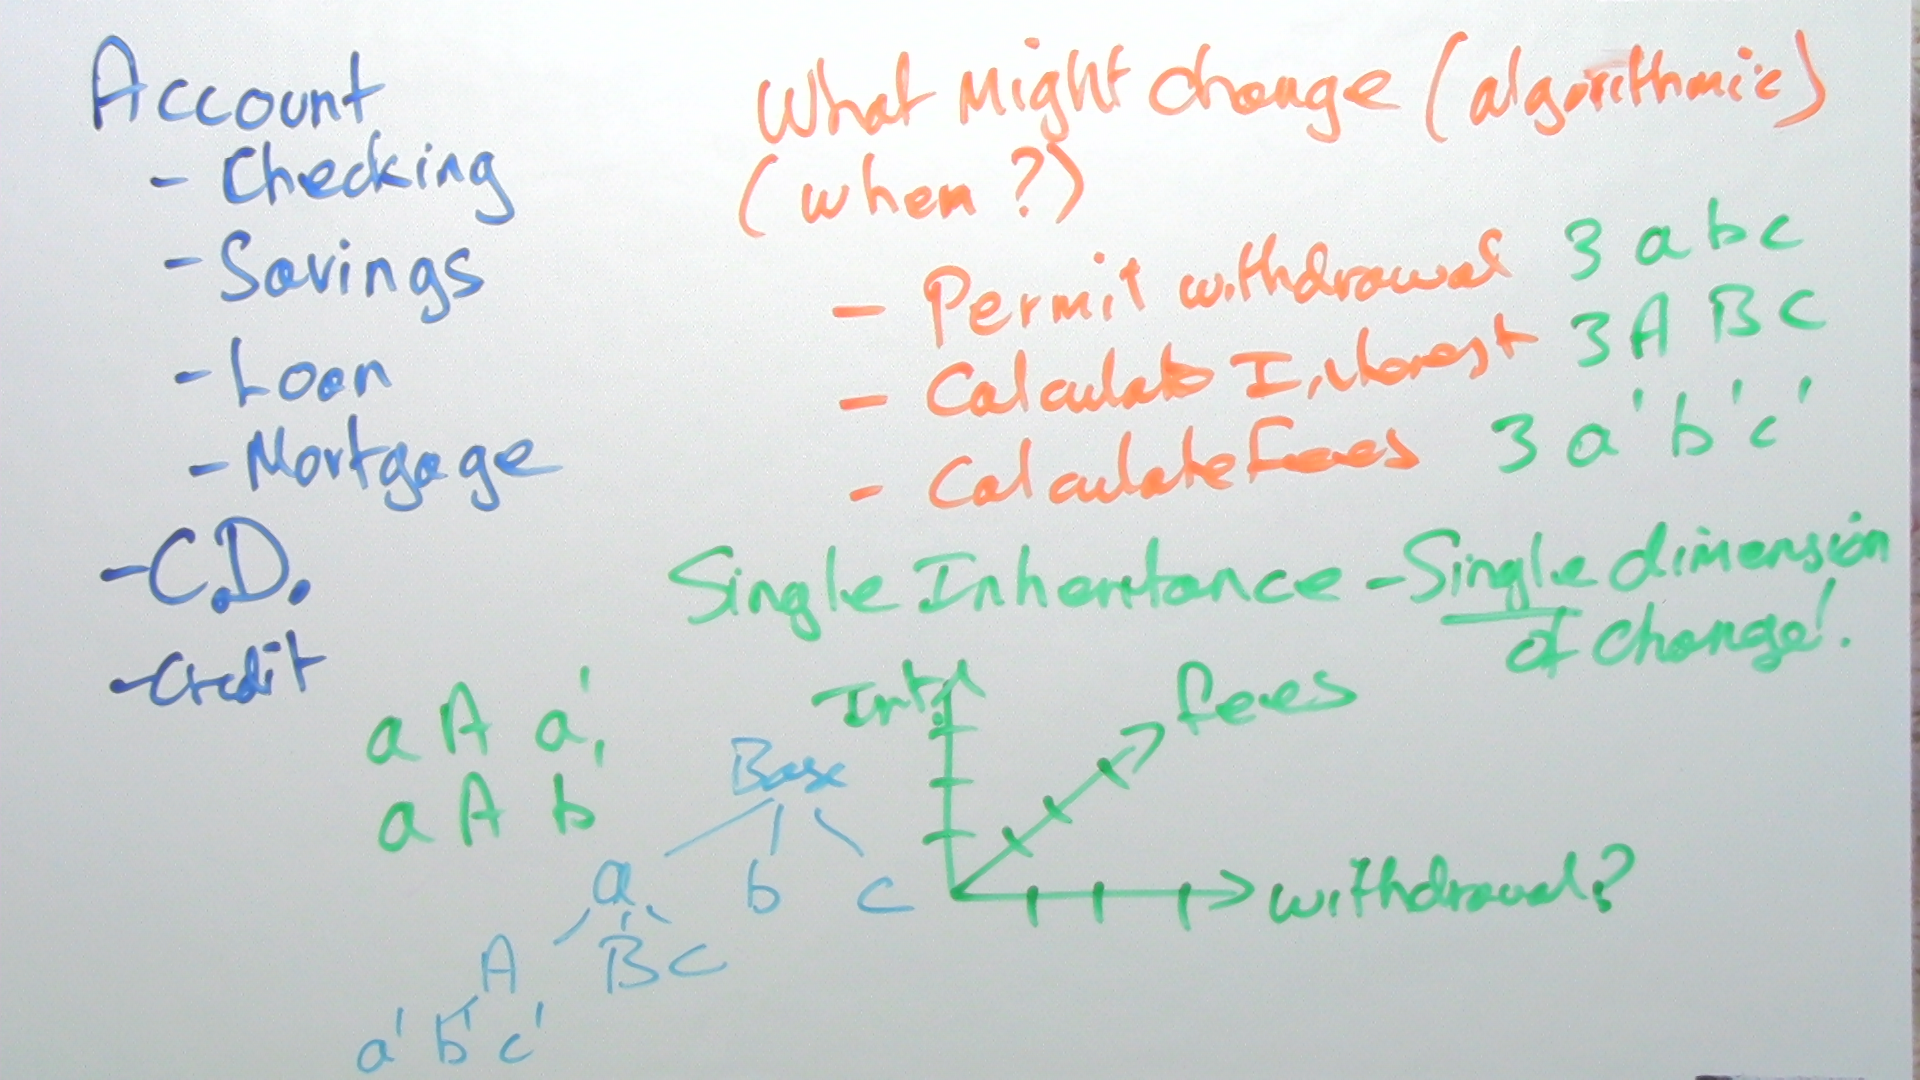 Account
- Checking
- Savings
- Loan
- Mortgage
- C.D.
- Credit
What Might change (algorithmic)
(when?)
- Permit withdrawal 3 a b c
- Calculate Interest 3 A B C
- Calculate Fees 3 a' b' c'
Single Inheritance - Single dimension
of change!.
a A a'
a A b'
Base
a b c
A B C
a' b' c'
Int.
fees
withdrawal?